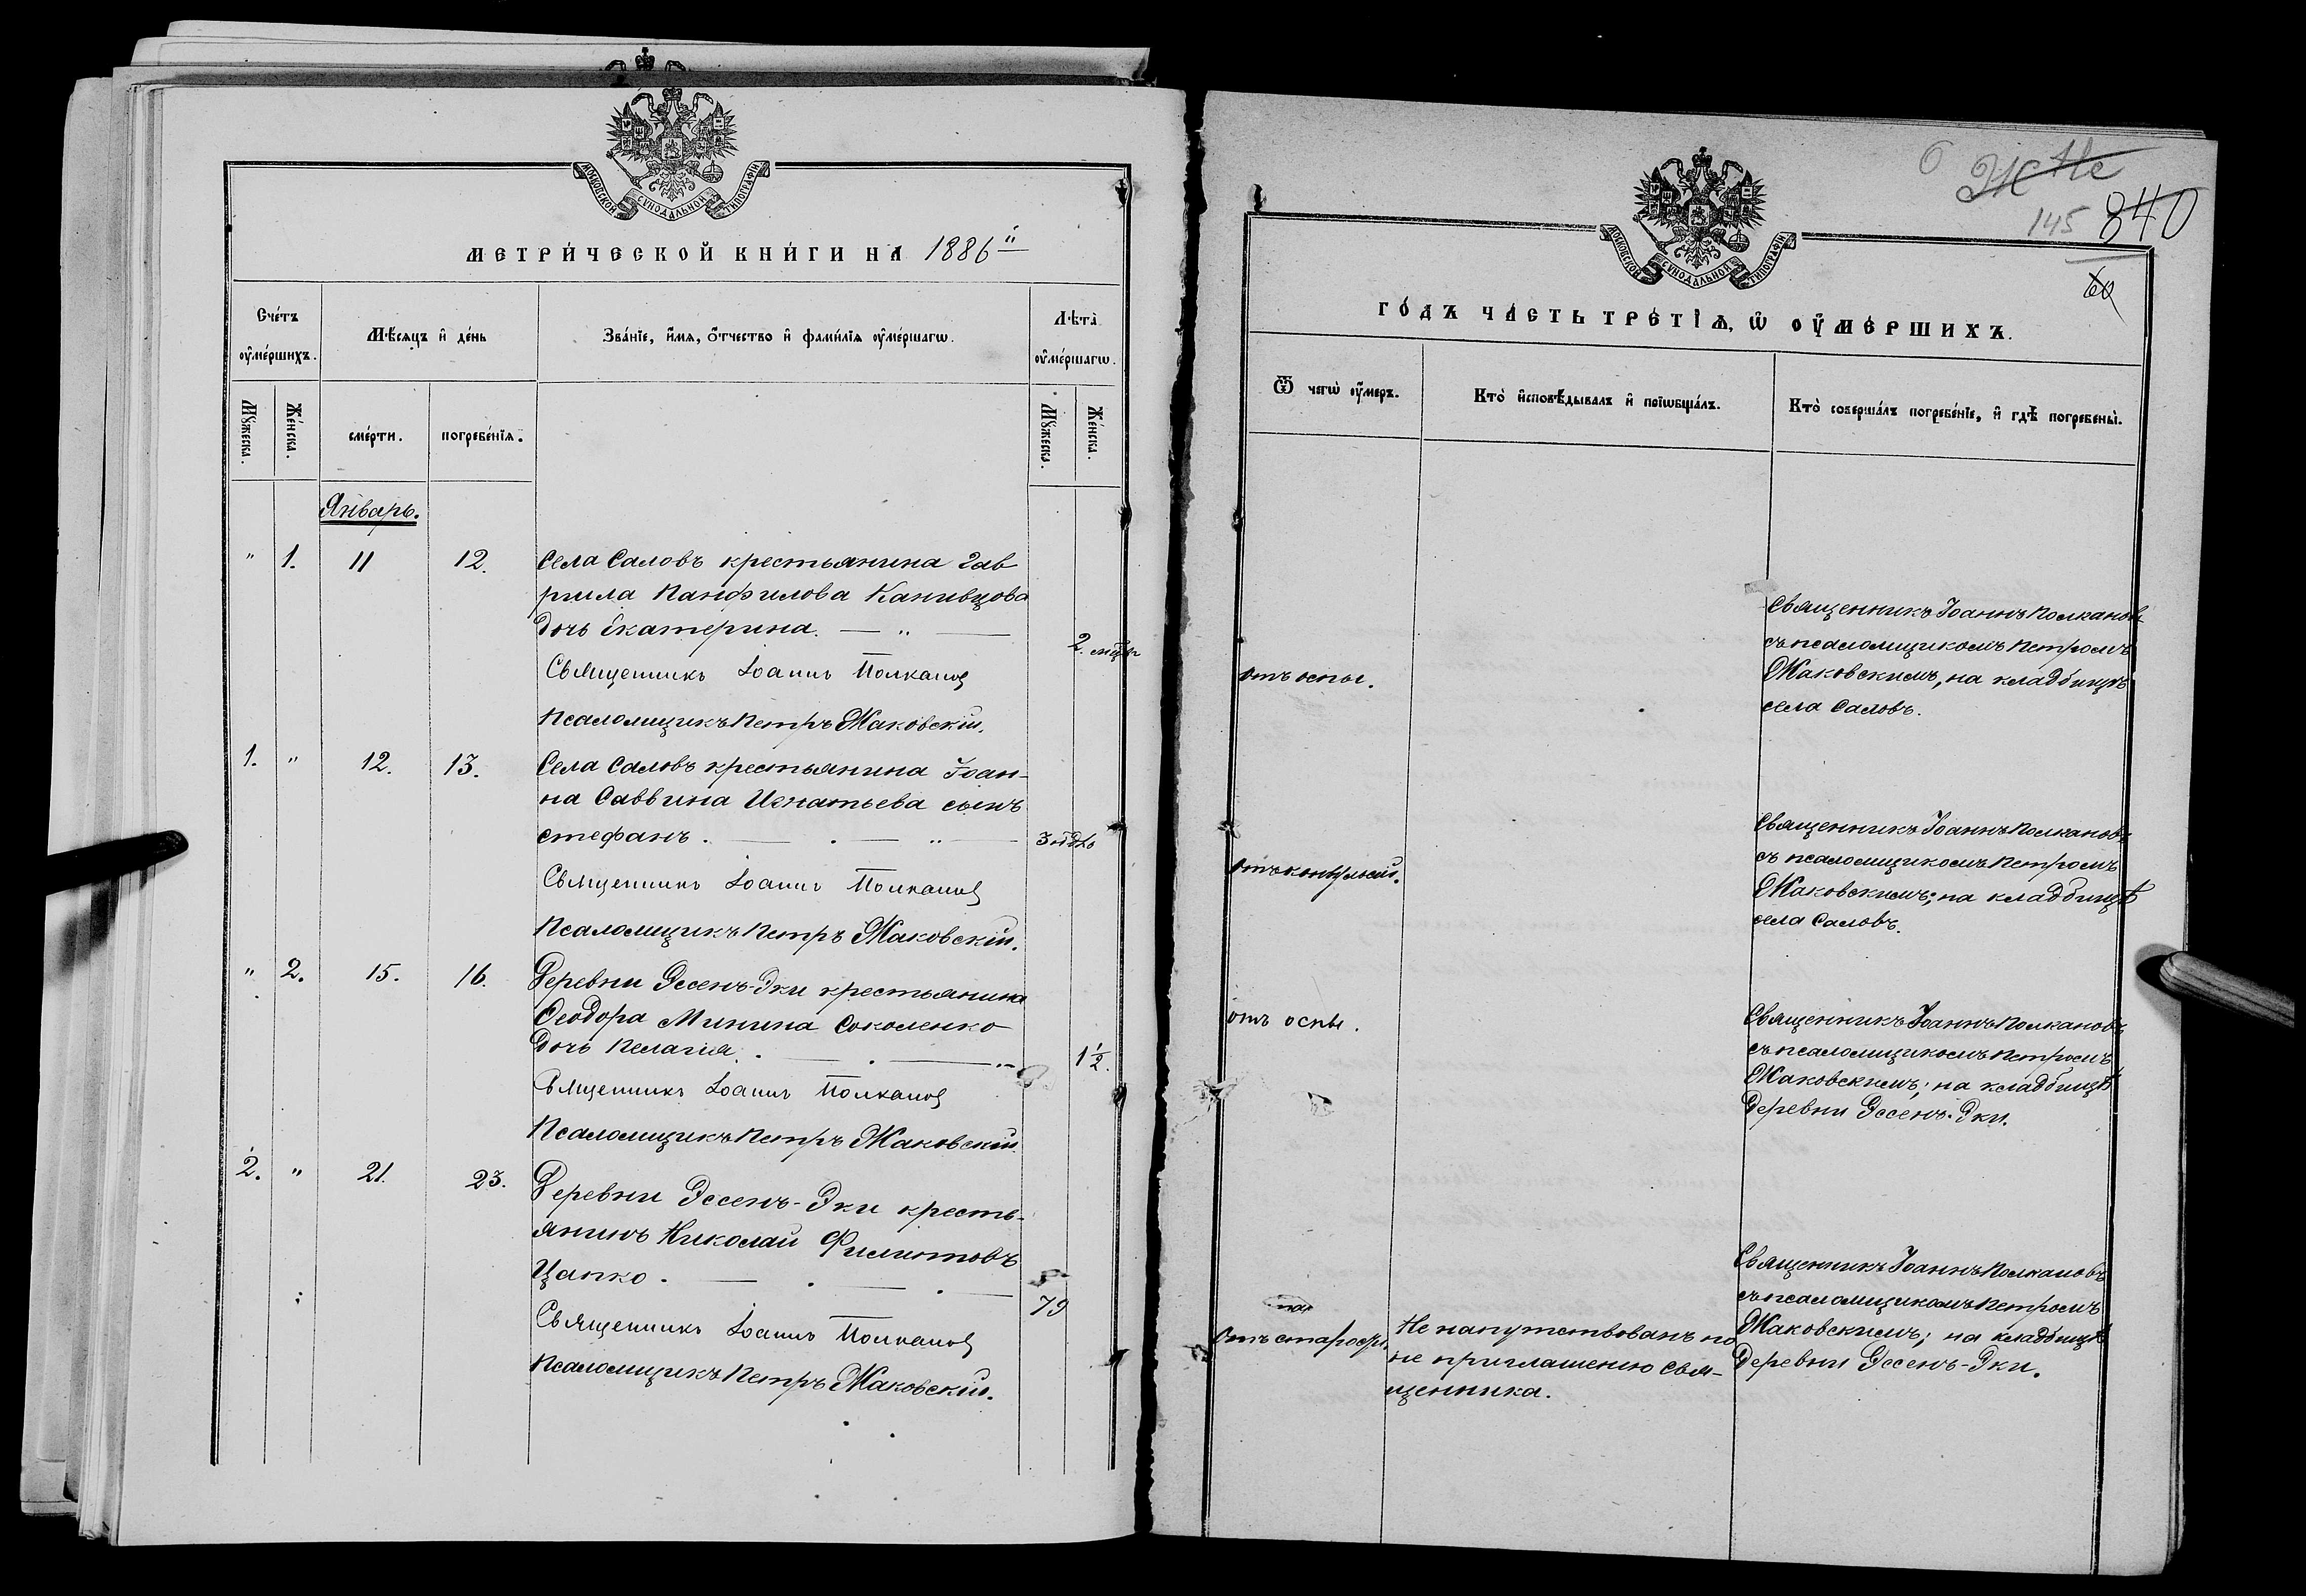 МОСКОВСКОЙ СѴНОДАЛЬНОЙ ТИПОГРАФІИ
МЕТРИ́ЧЕСКОЙ КНИ́ГИ НА 1886й
Сче́тъ ᲂу҆ме́ршихъ.
Мѣ́сяцъ и҆ де́нь
Зва́нїе, и҆́мя, ѻ҆́тчество и҆ фами́лїя ᲂу҆ме́ршагѡ.
Лѣта̀ ᲂу҆ме́ршагѡ.
Мꙋ́жеска.
Же́нска.
сме́рти.
погребе́нїя.
Мꙋ́жеска.
Же́нска.
Январь.
" 1. 11 12.
Села Саловъ крестьянина Гав
риила Панфилова Канивцова
дочь Екатерина. — „ —
2. мѣс.
Священникъ Іоаннъ Полкановъ
Псаломщикъ Петръ Жаковскій.
1. " 12. 13.
Села Саловъ крестьянина Іоан-
на Саввина Игнатьева сынъ
Стефанъ. — . — „ —
3 нѣд.
Священникъ Іоаннъ Полкановъ
Псаломщикъ Петръ Жаковскій.
" 2. 15. 16.
Деревни Эссенъ-Эки крестьянина
Ѳеодора Минина Соколенко
дочь Пелагія. — . — „
1½.
Священникъ Іоаннъ Полкановъ
Псаломщикъ Петръ Жаковскій.
2. " 21. 23.
Деревни Эссенъ-Эки кресть-
янинъ Николай Филиповъ
Цапко. — . — . —
79
Священникъ Іоаннъ Полкановъ
Псаломщикъ Петръ Жаковскій.
МОСКОВСКОЙ СѴНОДАЛЬНОЙ ТИПОГРАФІИ
145 840
60
ГО́ДЪ ЧА́СТЬ ТРЕ́ТІѦ, Ѡ҆ ОУ҆МЕ́РШИХЪ.
Ѿ чегѡ̀ ᲂу҆́меръ.
Кто̀ и҆сповѣ́дывалъ и҆ прїѡбща́лъ.
Кто̀ соверша́лъ погребе́нїе, и҆ гдѣ̀ погребены̀.
отъ оспы.
Священникъ Іоаннъ Полкановъ
съ псаломщикомъ Петромъ
Жаковскимъ, на кладбищѣ
села Саловъ.
отъ конвульсій.
Священникъ Іоаннъ Полкановъ
съ псаломщикомъ Петромъ
Жаковскимъ; на кладбищѣ
села Саловъ.
отъ оспы.
Священникъ Іоаннъ Полкановъ
съ псаломщикомъ Петромъ
Жаковскимъ; на кладбищѣ
деревни Эссенъ-Эки.
Отъ старости.
Не напутствованъ по
не приглашенію свя-
щенника.
Священникъ Іоаннъ Полкановъ
съ псаломщикомъ Петромъ
Жаковскимъ; на кладбищѣ
деревни Эссенъ-Эки.